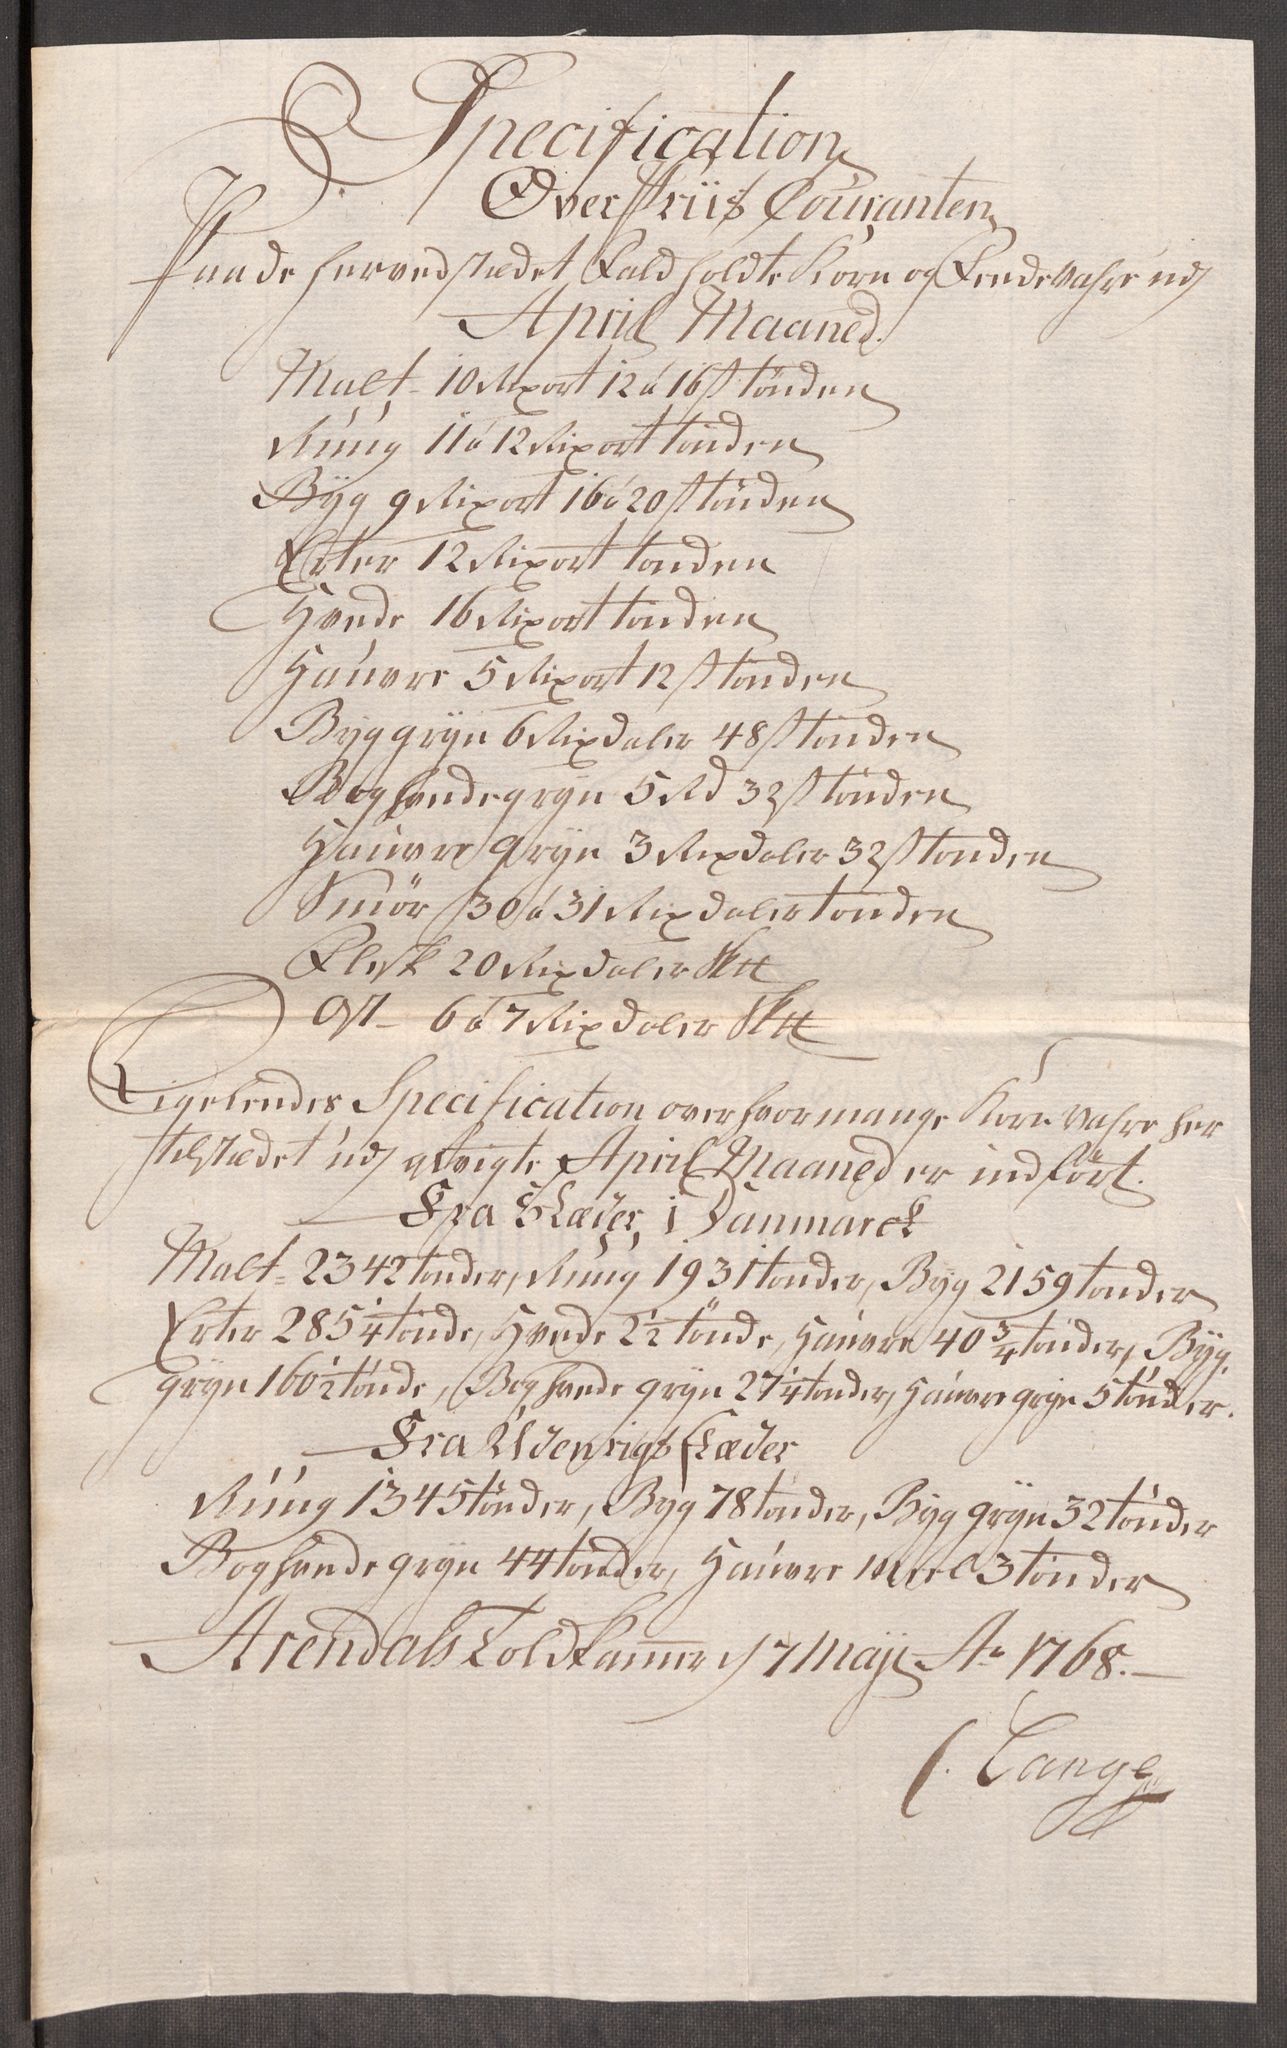 Specification
Over Priis Couranten
Paa de her ved stædet Fald holdte Korn og Fende Vahre udj
April Maaned.
Malt 10 Rixort 12 á 16 s tönden
Rúúg 11 á 12 Rixort tönden
Byg 9 Rixort 16 á 20 s tönden
Erter 12 Rixort tönden
Hvede 16 Rixort tönden
Haúvre 5 Rixort 12 s tönden
Byg gryn 6 Rixdaler 48 s tönden
Boghvede gryn 5 Rd 32 s tönden
Haúvre gryn 3 Rixdaler 32 s tönden
Smör 30 á 31 Rixdaler tönden
Flesk 20 Rixdaler Sk℔
Ost 6 á 7 Rixdaler Sk℔
Ligeleedes Specification over hvor mange Korn Vahre her
til stædet údj April Maaned er indfört.
Fra Stæder i Danmarck
Malt 2342 tönder, Rúúg 1931 tönder, Byg 2159 tönder
Erter 285 1/4 tönde, Hvede 2 1/2 tönde, Haúvre 40 3/4 tönder, Byg
gryn 160 1/2 tönde, Boghvede gryn 27 1/4 tönder, Haúvre gryn 5 tönder.
Fra Udenrigs stæder
Rúúg 1345 tönder, Byg 78 tönder, Byg gryn 32 tönder
Boghvede gryn 44 tönder, Haúvre Meel 3 tönder
Arendals Toldkammer d 7 Maji Ao 1768.
C. Lange